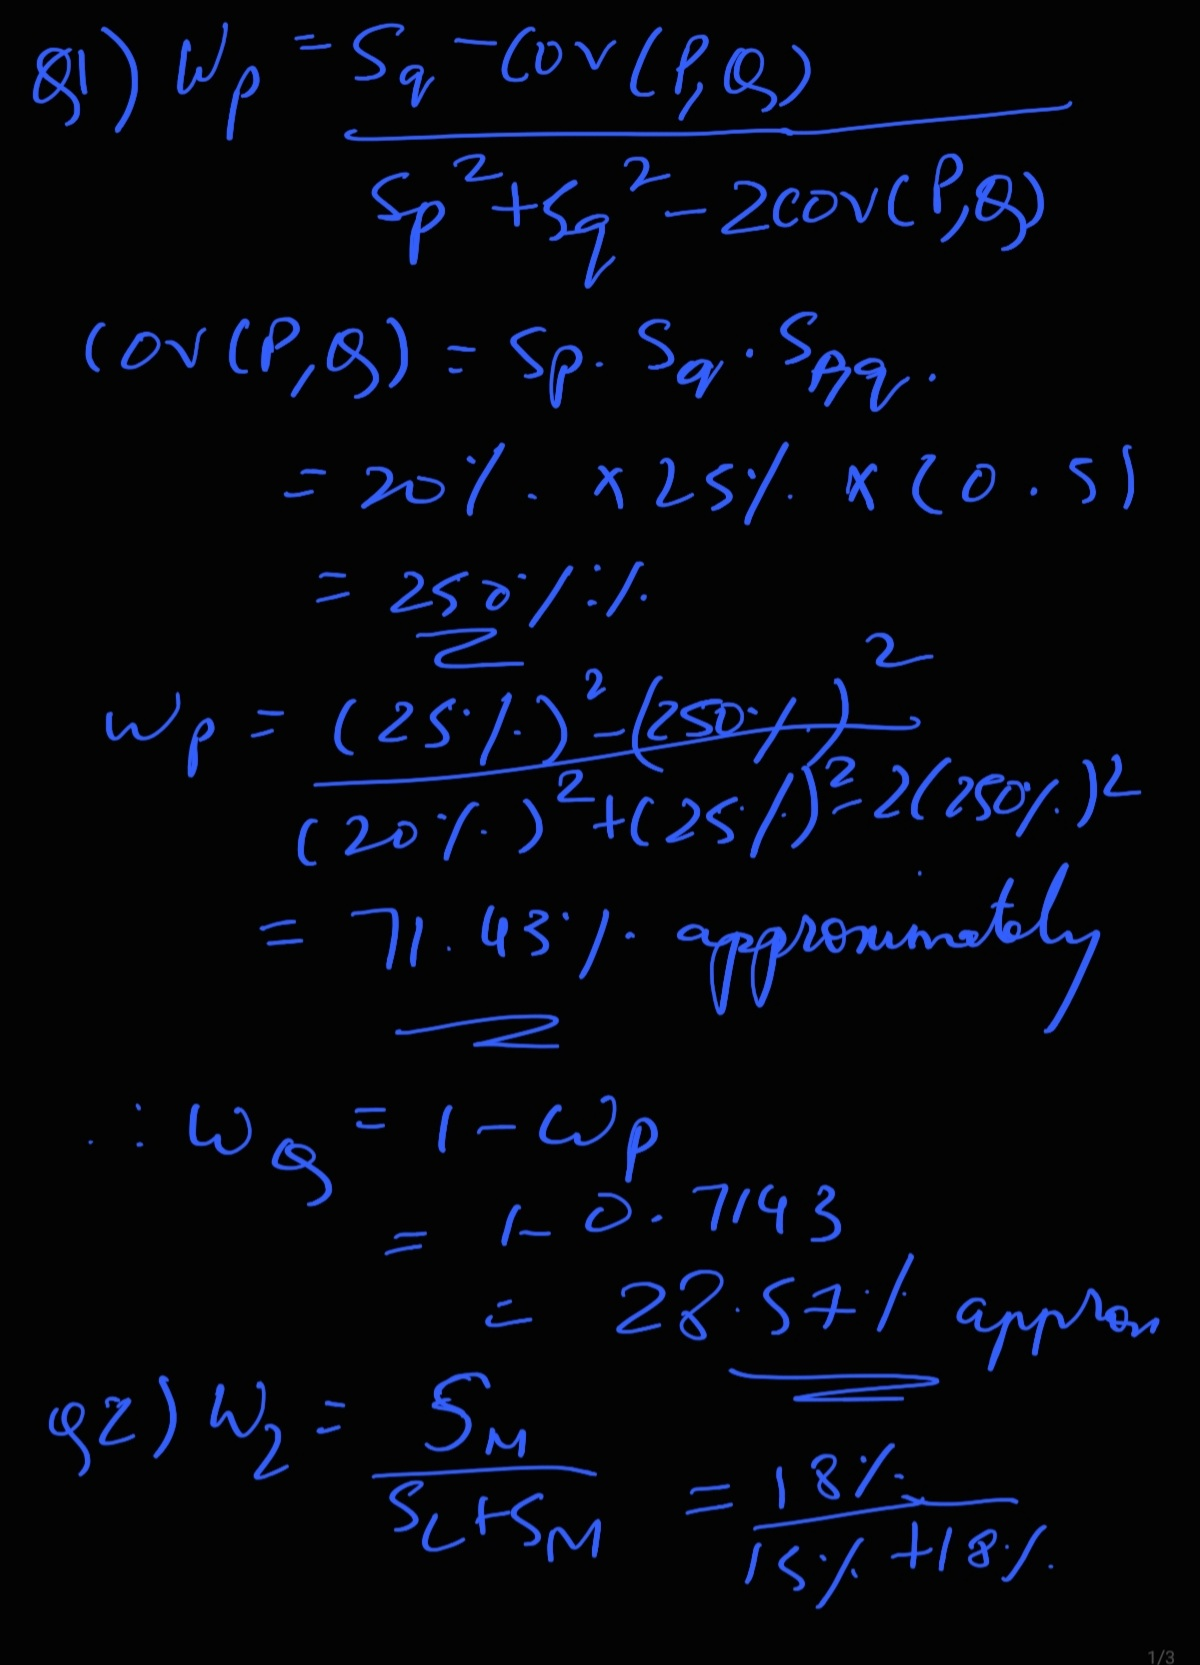 Q1) Wp = Sq - Cov(P,Q)
Sp² + Sq² - 2cov(P,Q)
Cov(P,Q) = Sp. Sq. Sp,q.
= 20%. × 25%. × (0.5)
= 250%%
Wp = (25%)² - (250%)²
(20%)² + (25%)² - 2(250%)²
= 71.43% approximately
∴ WQ = 1 - Wp
= 1 - 0.7143
= 28.57% approx
Q2) WL = SM = 18%
SL + SM 15% + 18%
1/3